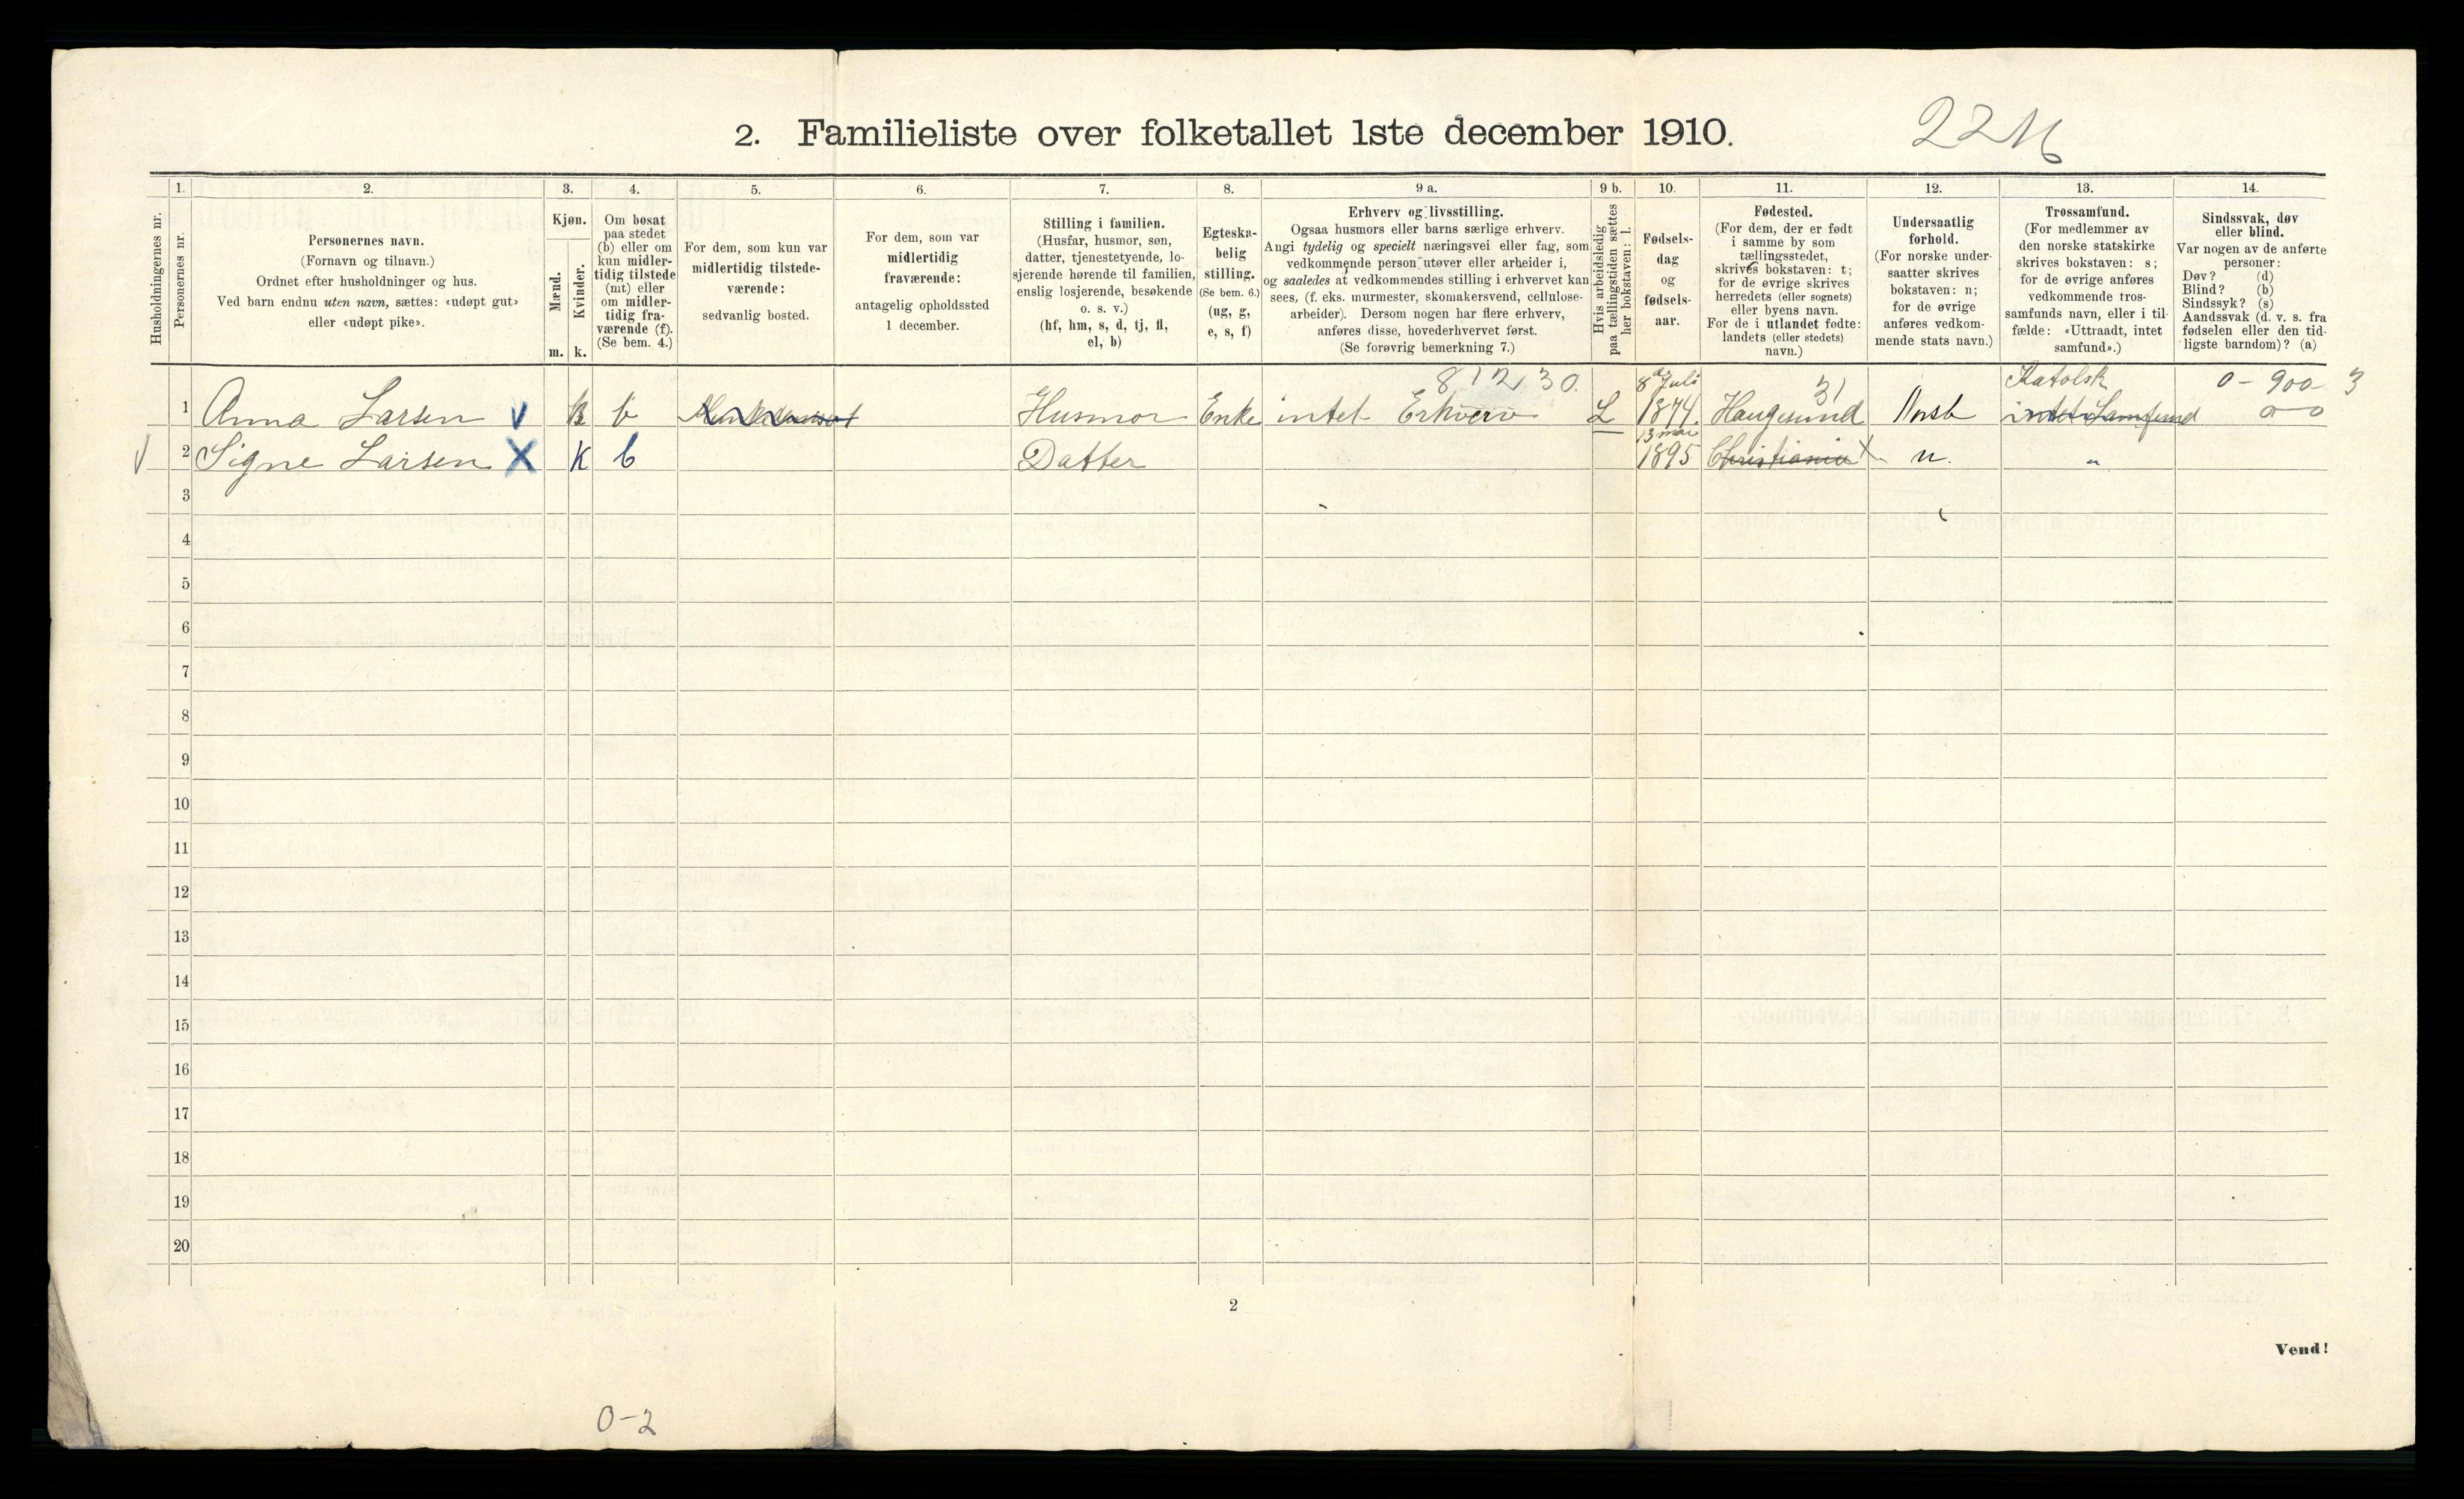 2. Familieliste over folketallet 1ste december 1910.
22
Husholdningernes nr.
1.
Personernes nr.
2.
Personernes navn.
(Fornavn og tilnavn.)
Ordnet efter husholdninger og hus.
Ved barn endnu uten navn, sættes: «udøpt gut»
eller «udøpt pike».
3.
Kjøn.
Mænd.
Kvinder.
m. k.
4.
Om bosat
paa stedet
(b) eller om
kun midler-
tidig tilstede
(mt) eller
om midler-
tidig fra-
værende (f).
(Se bem. 4.)
5.
For dem, som kun var
midlertidig tilstede-
værende:
sedvanlig bosted.
6.
For dem, som var
midlertidig
fraværende:
antagelig opholdssted
1 december.
7.
Stilling i familien.
(Husfar, husmor, søn,
datter, tjenestetyende, lo-
sjerende hørende til familien,
enslig losjerende, besøkende
o. s. v.)
(hf, hm, s, d, tj, fl,
el, b)
8.
Egteska-
belig
stilling.
(Se bem. 6.)
(ug, g,
e, s, f)
9 a.
Erhverv og livsstilling.
Ogsaa husmors eller barns særlige erhverv.
Angi tydelig og specielt næringsvei eller fag, som
vedkommende person utøver eller arbeider i,
og saaledes at vedkommendes stilling i erhvervet kan
sees, (f. eks. murmester, skomakersvend, cellulose-
arbeider). Dersom nogen har flere erhverv,
anføres disse, hovederhvervet først.
(Se forøvrig bemerkning 7.)
9 b.
Hvis arbeidsledig
paa tællingstiden sættes
her bokstaven: l.
10.
Fødsels-
dag
og
fødsels-
aar.
11.
Fødested.
(For dem, der er født
i samme by som
tællingsstedet,
skrives bokstaven: t;
for de øvrige skrives
herredets (eller sognets)
eller byens navn.
For de i utlandet fødte:
landets (eller stedets)
navn.)
12.
Undersaatlig
forhold.
(For norske under-
saatter skrives
bokstaven: n;
for de øvrige
anføres vedkom-
mende stats navn.)
13.
Trossamfund.
(For medlemmer av
den norske statskirke
skrives bokstaven: s;
for de øvrige anføres
vedkommende tros-
samfunds navn, eller i til-
fælde: «Uttraadt, intet
samfund».)
14.
Sindssvak, døv
eller blind.
Var nogen av de anførte
personer:
Døv? (d)
Blind? (b)
Sindssyk? (s)
Aandssvak (d. v. s. fra
fødselen eller den tid-
ligste barndom)? (a)
8 12 30. 8de Juli 31 Katolsk 0 - 900 3
1 Anna Larsen V k b Husmor Enke intet Erhverv L 1874. Haugesund Norsk intet Samfund 0 0
13 mai
V 2 Signe Larsen X K b Datter 1895 Christiania X n. "
3
4
5
6
7
8
9
10
11
12
13
14
15
16
17
18
19
20
2
Vend!
0-2